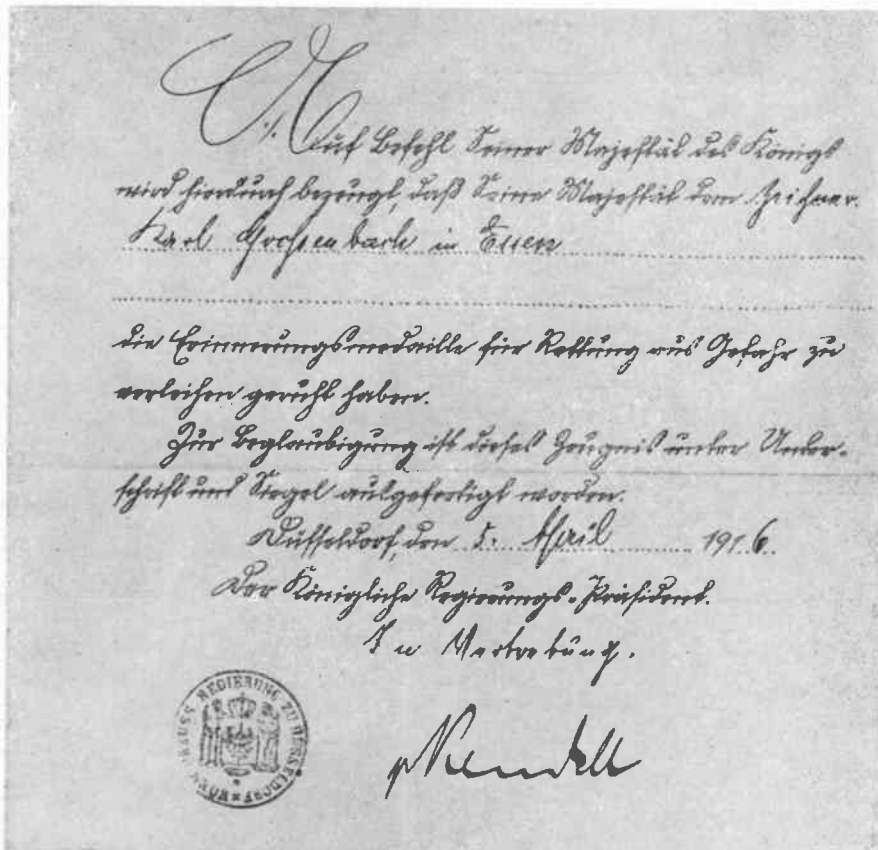 Auf Befehl Seiner Majestät des Königs
wird hierdurch bezeugt, daß Seine Majestät dem Zeichner
Karl Grossenbach in Essen
die Erinnerungsmedaille für Rettung aus Gefahr zu
verleihen geruht haben.
Zur Beglaubigung ist dieses Zeugnis unter Unter-
schrift und Siegel ausgefertigt worden.
Düsseldorf, den 5. April 1916.
Der Königliche Regierungs-Präsident.
In Vertretung.
KÖN. PREUSS. REGIERUNG ZU DÜSSELDORF